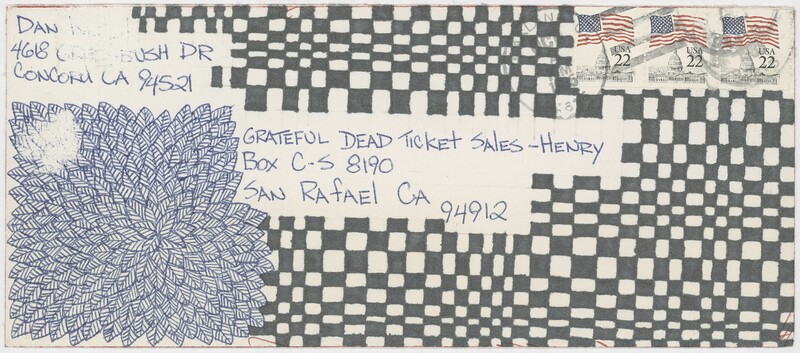 DAN
4618 BUSH DR
CONCORD CA 94521
USA 22
USA 22
USA 22
GRATEFUL DEAD TICKET SALES - HENRY
BOX C-S 8190
SAN RAFAEL CA
94912